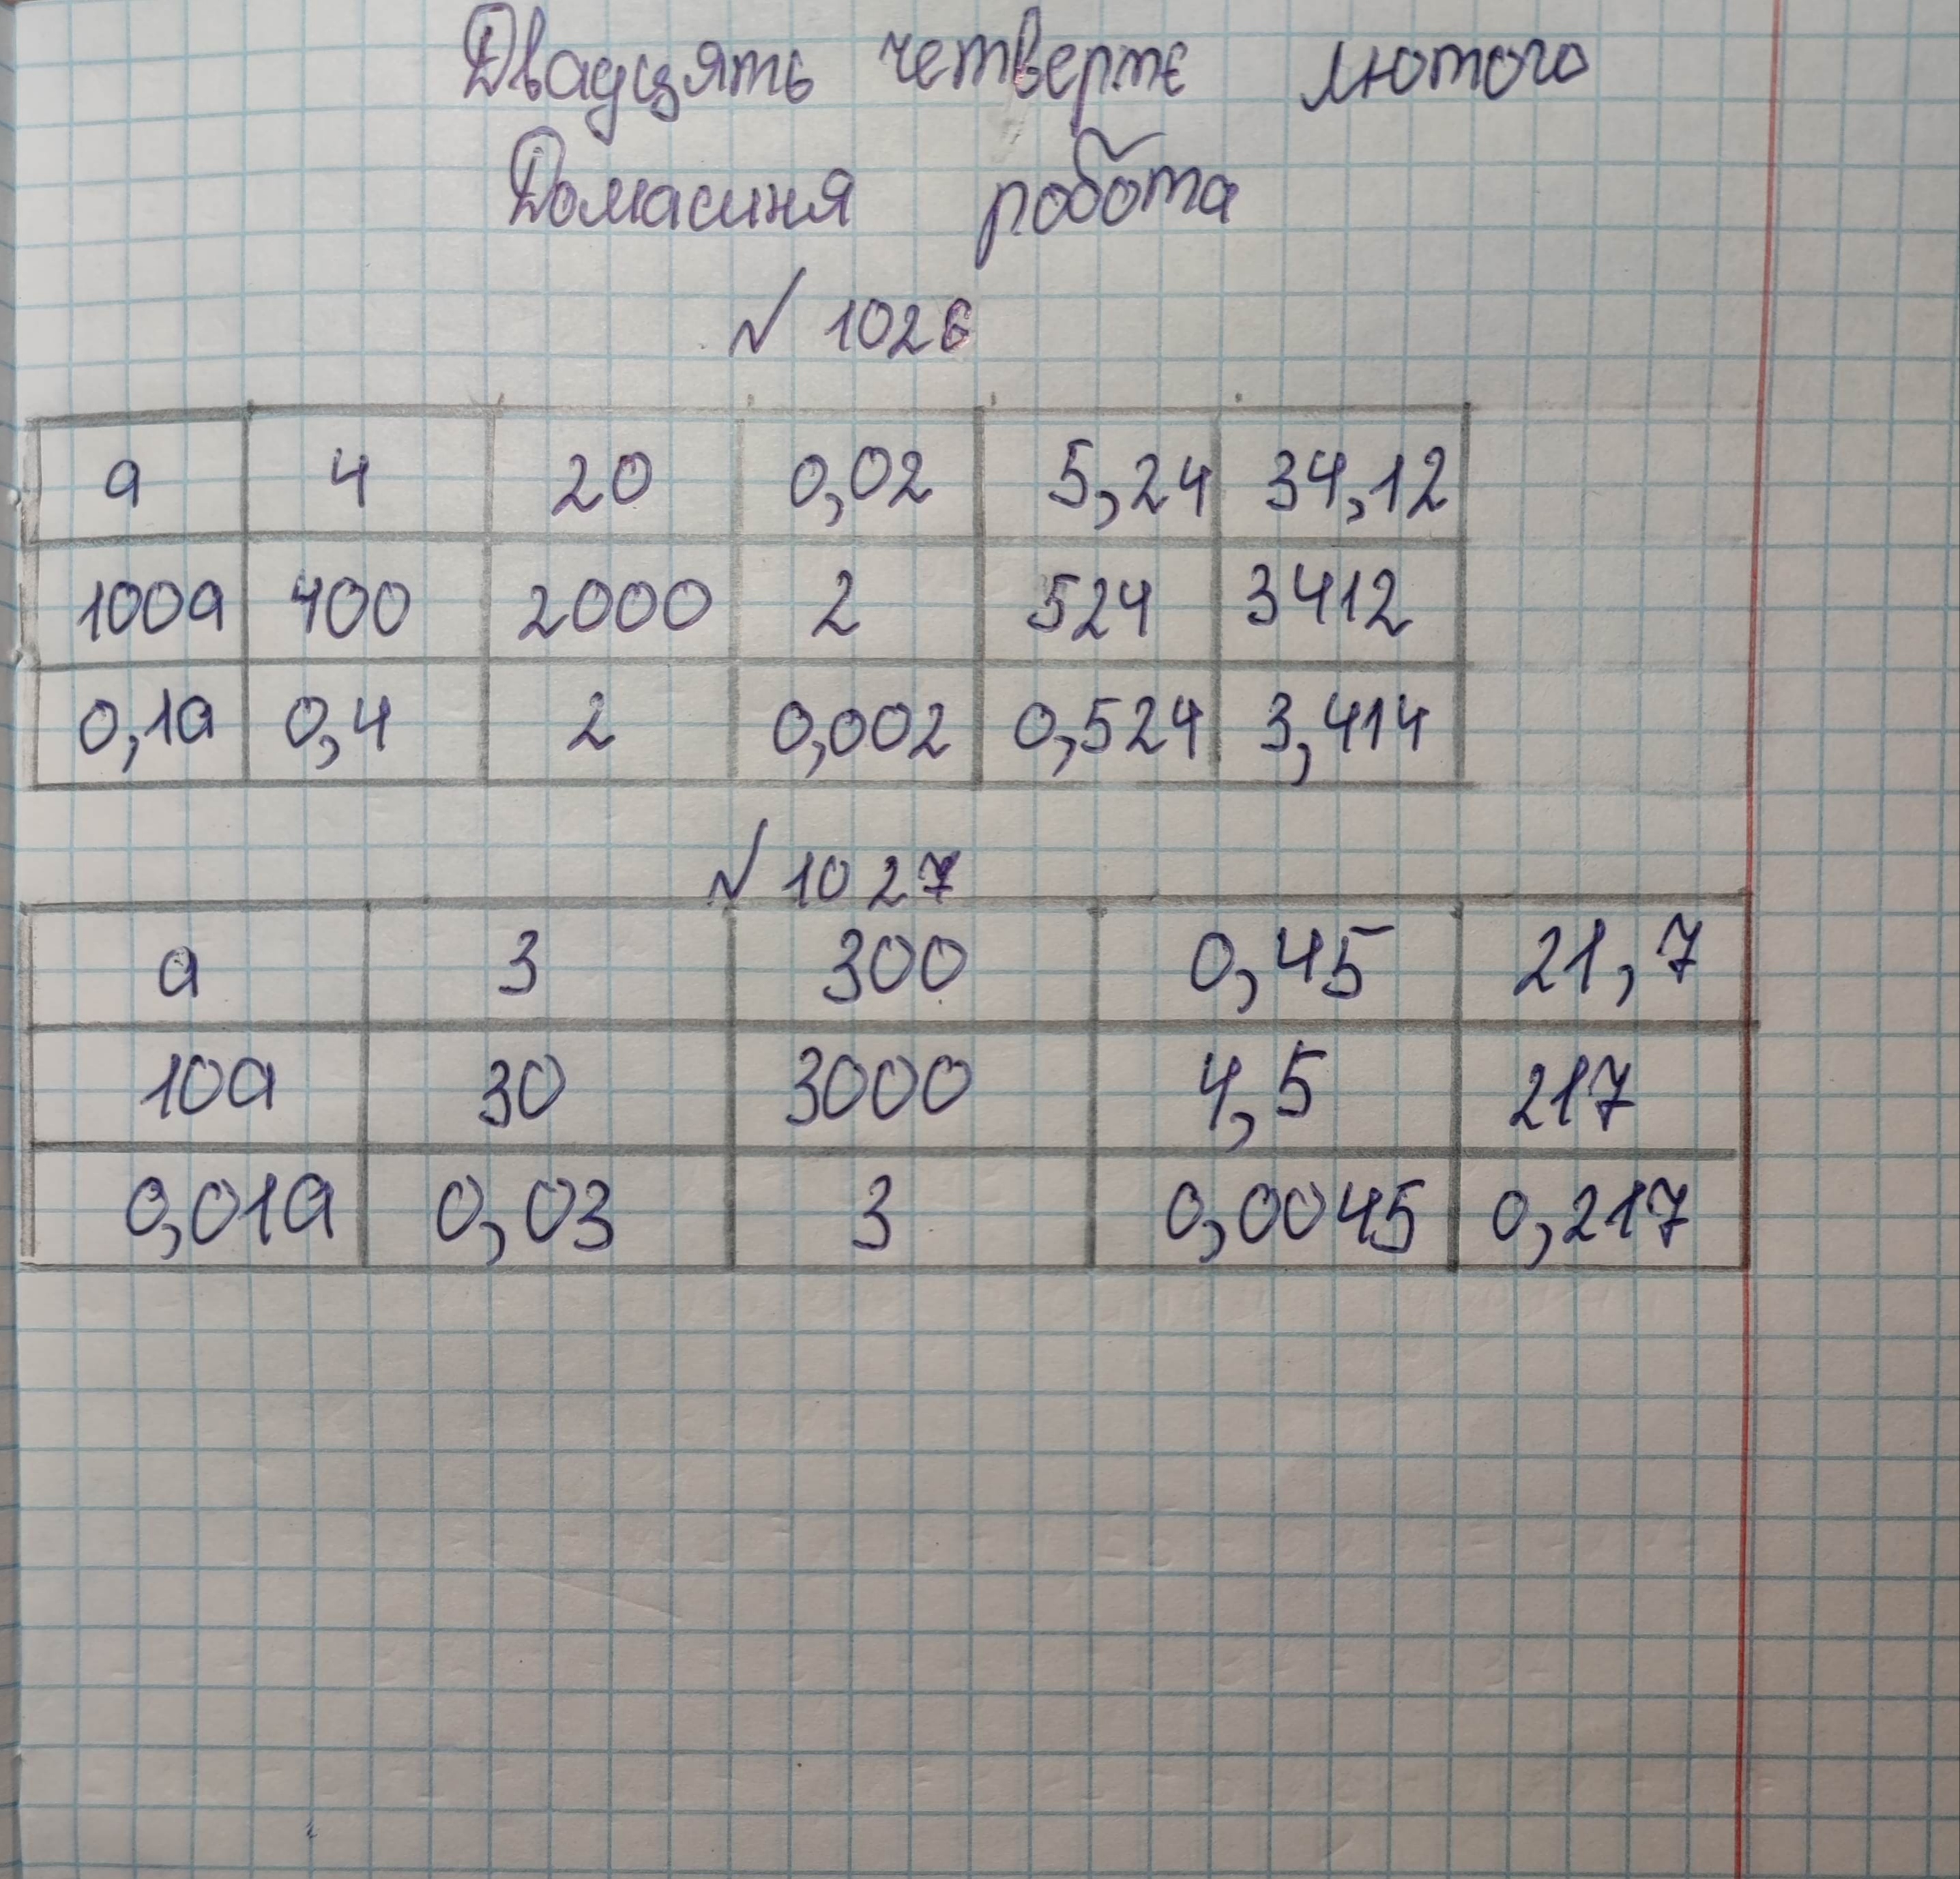 Двадцять четверте лютого
Домашня робота
№ 1026
а 4 20 0,02 5,24 34,12
100а 400 2000 2 524 3412
0,1а 0,4 2 0,002 0,524 3,414
№ 1027
а 3 300 0,45 21,7
10а 30 3000 4,5 217
0,01а 0,03 3 0,0045 0,217